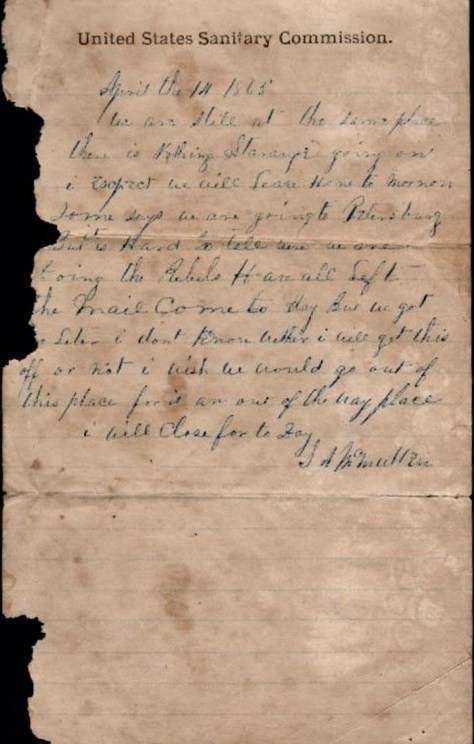 United States Sanitary Commission.
April the 14 1865
we are still at the same place
there is Nothing Strange going on
i Expect we will Leave Here to morrow
Some says we are going to Petersburg
But is Hard to tell were we are
going the Rebels H are all Left
the Mail Come to day But we got
Letter i dont Know wether i will get this
off or not i wish we would go out of
this place for it an out of the way place
i will Close for to Day